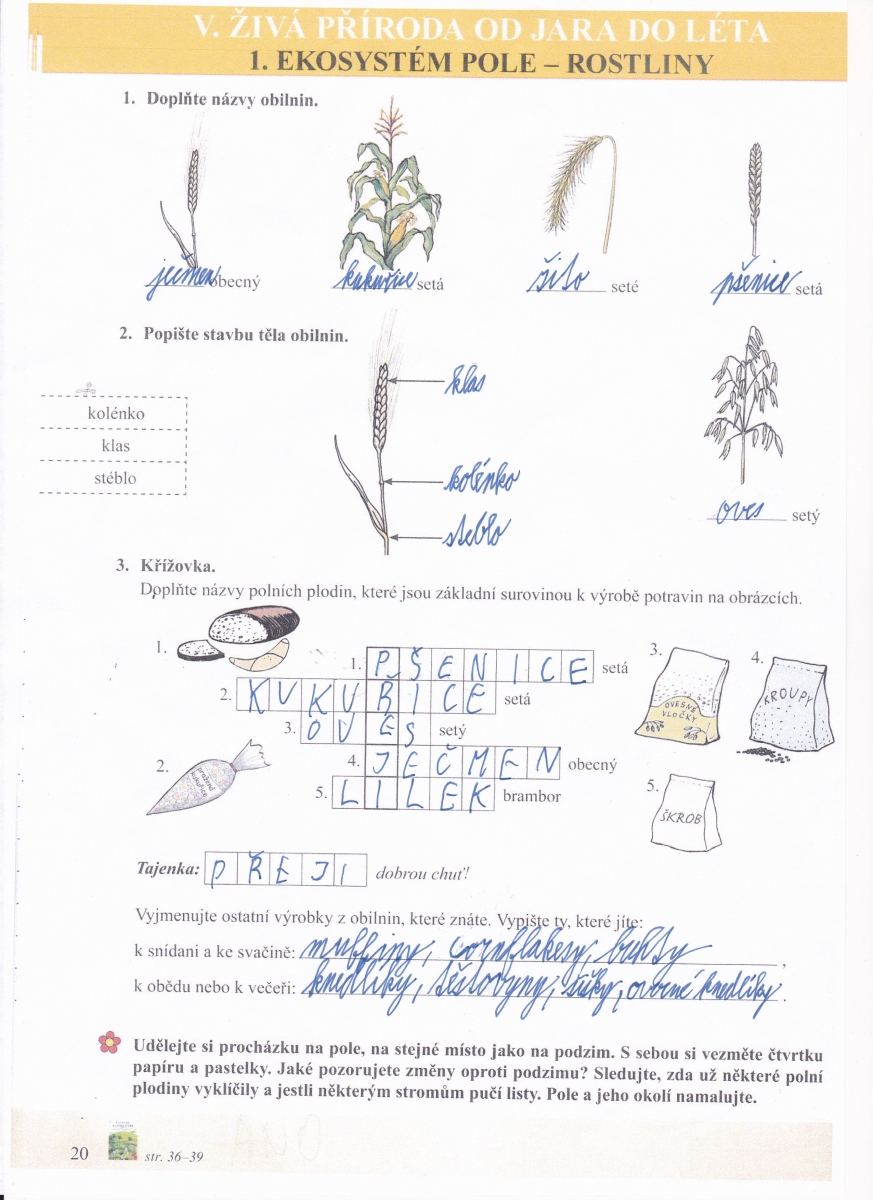 V. ŽIVÁ PŘÍRODA OD JARA DO LÉTA
1. EKOSYSTÉM POLE – ROSTLINY
1. Doplňte názvy obilnin.
ječmen obecný
kukuřice setá
žito seté
pšenice setá
2. Popište stavbu těla obilnin.
kolénko
klas
stéblo
klas
kolénko
steblo
oves setý
3. Křížovka.
Doplňte názvy polních plodin, které jsou základní surovinou k výrobě potravin na obrázcích.
1.
1. PŠENICE setá
2. KUKUŘICE setá
3. OVES setý
4. JEČMEN obecný
5. LILEK brambor
2.
pražená kukuřice
3.
OVESNÉ VLOČKY
4.
KROUPY
5.
ŠKROB
Tajenka: PŘEJI dobrou chuť!
Vyjmenujte ostatní výrobky z obilnin, které znáte. Vypište ty, které jíte:
k snídani a ke svačině: muffiny, cornflakesy, buhty,
k obědu nebo k večeři: knedlíky, těstovyny, šišky, ovocné knedlíky.
Udělejte si procházku na pole, na stejné místo jako na podzim. S sebou si vezměte čtvrtku
papíru a pastelky. Jaké pozorujete změny oproti podzimu? Sledujte, zda už některé polní
plodiny vyklíčily a jestli některým stromům pučí listy. Pole a jeho okolí namalujte.
20
str. 36–39
ANO